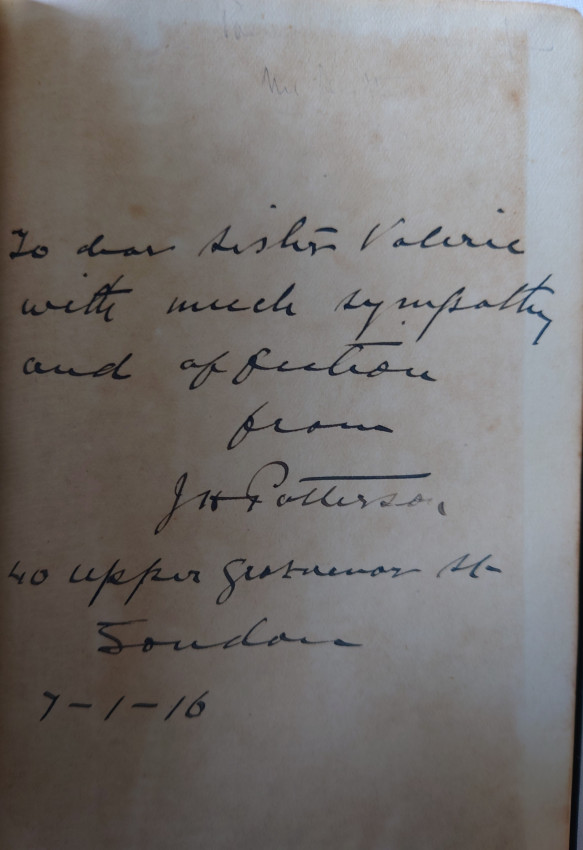 To dear Sister Valerie
with much sympathy
and affection
from
J H Patterson
40 Upper Grosvenor St
London
7-1-16